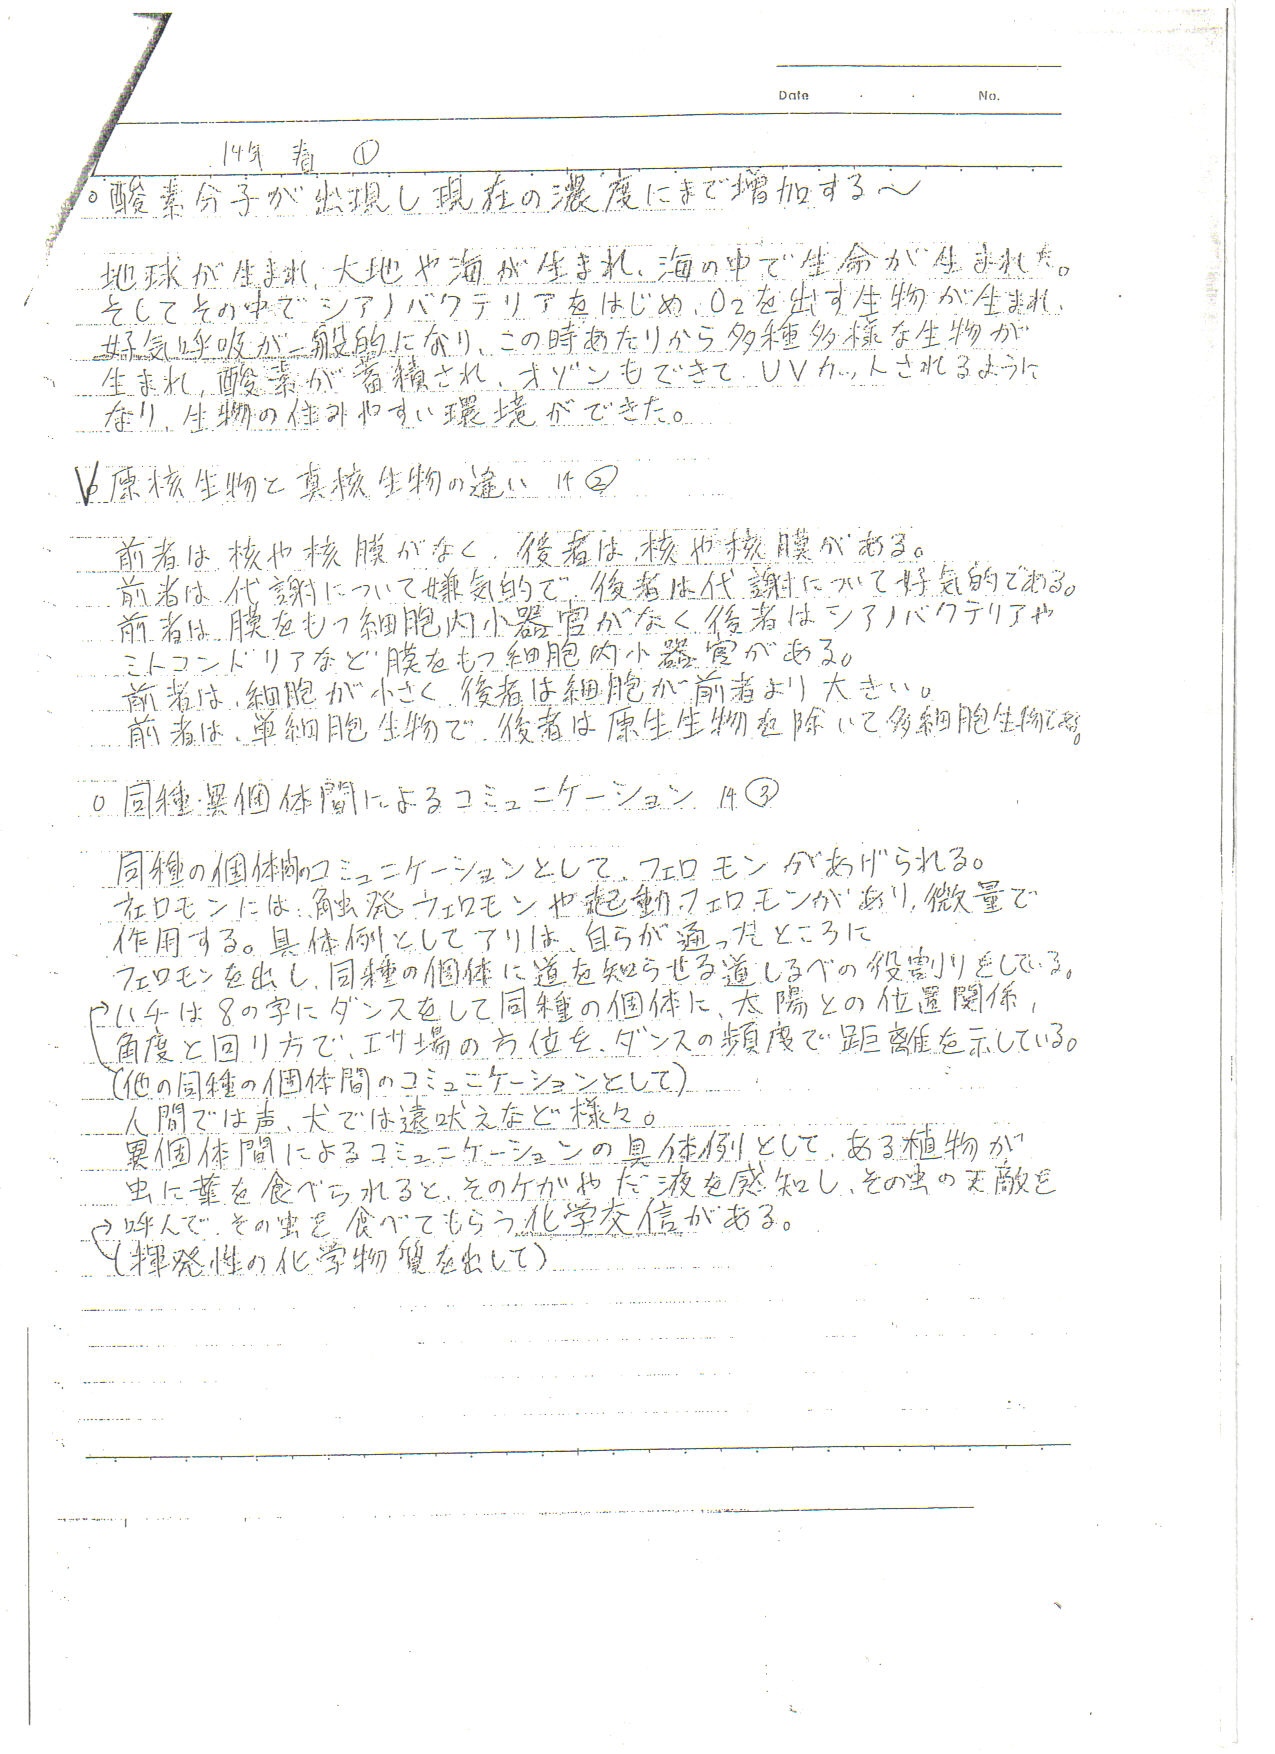 Date . . No.
14年 春 ①
○酸素分子が出現し現在の濃度にまで増加する〜
地球が生まれ、大地や海が生まれ、海の中で生命が生まれた。
そしてその中でシアノバクテリアをはじめ、O₂を出す生物が生まれ、
好気呼吸が一般的になり、この時あたりから多種多様な生物が
生まれ、酸素が蓄積され、オゾンもできて、UVカットされるように
なり、生物の住みやすい環境ができた。
○原核生物と真核生物の違い 14 ②
前者は核や核膜がなく、後者は、核や核膜がある。
前者は代謝について嫌気的で、後者は代謝について好気的である。
前者は膜をもつ細胞内小器官がなく後者はシアノバクテリアや
ミトコンドリアなど膜をもつ細胞内小器官がある。
前者は、細胞が小さく、後者は細胞が前者より大きい。
前者は、単細胞生物で、後者は原生生物を除いて多細胞生物である。
○同種・異個体間によるコミュニケーション 14 ③
同種の個体間のコミュニケーションとして、フェロモンがあげられる。
フェロモンには、触発フェロモンや起動フェロモンがあり、微量で
作用する。具体例としてアリは、自らが通ったところに
フェロモンを出し、同種の個体に道を知らせる道しるべの役割りをしている。
ハチは8の字にダンスをして同種の個体に、太陽との位置関係、
角度と回り方で、エサ場の方位を、ダンスの頻度で距離を示している。
(他の同種の個体間のコミュニケーションとして)
人間では声、犬では遠吠えなど様々。
異個体間によるコミュニケーションの具体例として、ある植物が
虫に葉を食べられると、そのケガやだ液を感知し、その虫の天敵を
呼んで、その虫を食べてもらう化学交信がある。
(揮発性の化学物質を出して)